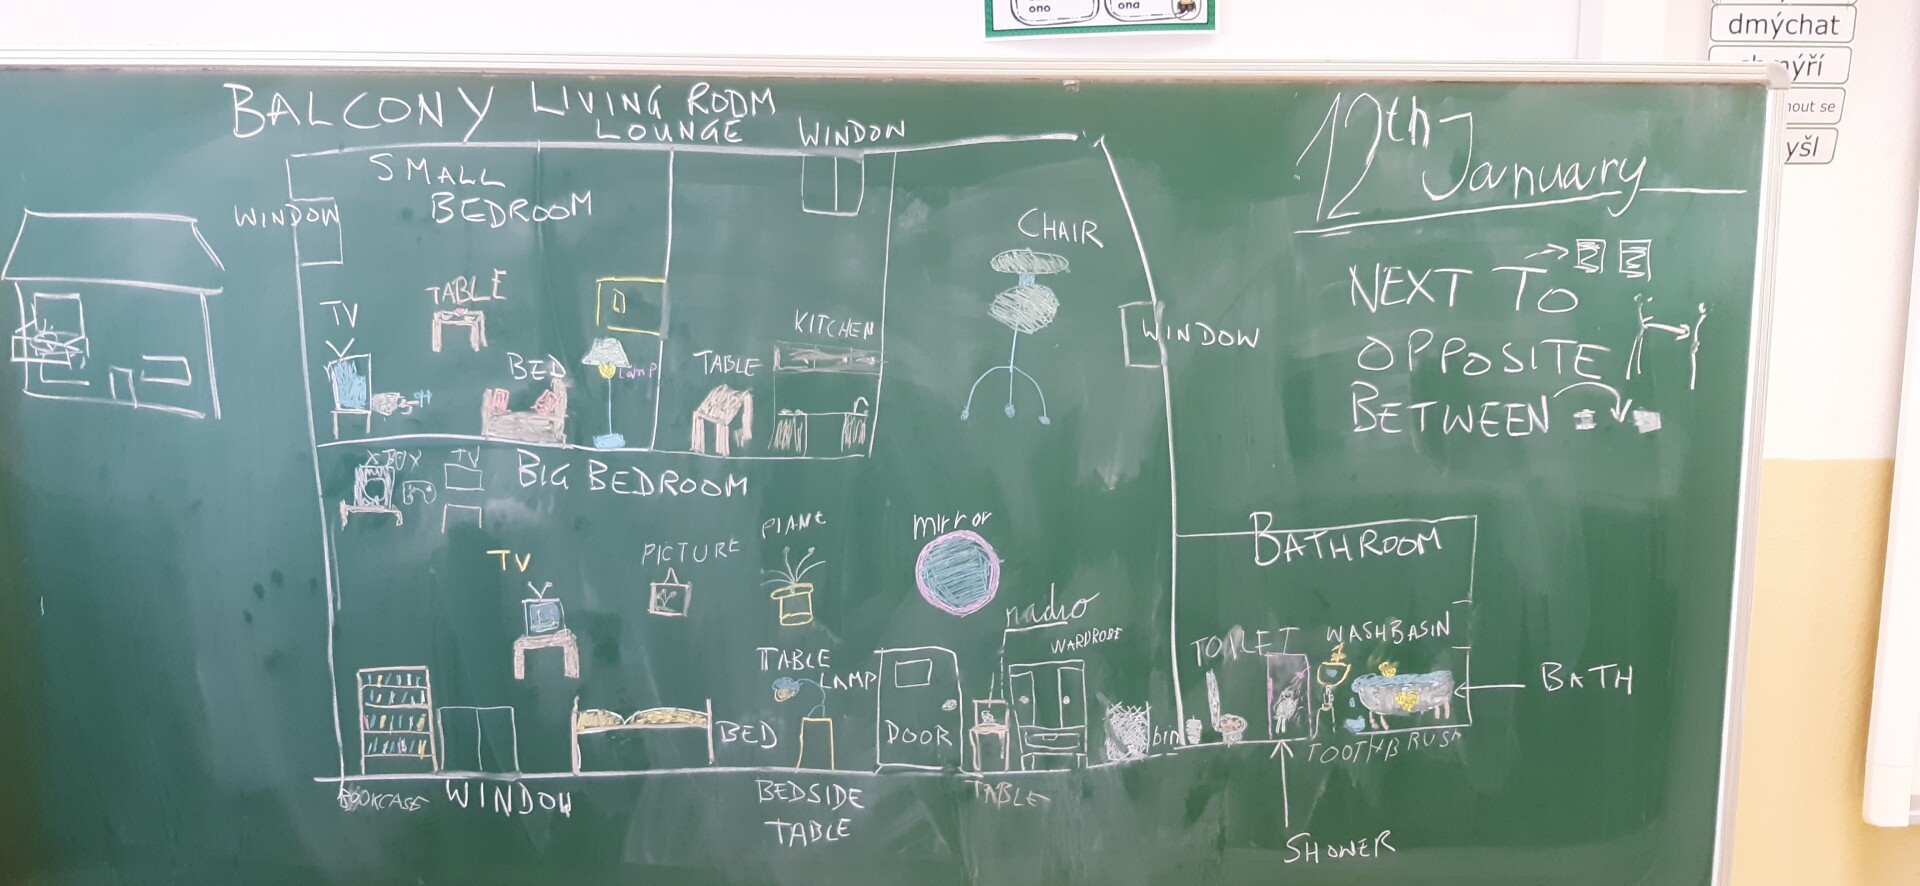 ono
ona
dmýchat
ýří
nout se
yšl
BALCONY
LIVING ROOM
LOUNGE
WINDOW
12th January
SMALL
BEDROOM
WINDOW
CHAIR
NEXT TO
TABLE
TV
KITCHEN
WINDOW
OPPOSITE
BED
LAMP
TABLE
BETWEEN
XBOX
TV
BIG BEDROOM
PLANT
mirror
PICTURE
TV
BATHROOM
radio
WARDROBE
TOILET
WASHBASIN
TABLE
LAMP
BATH
BED
DOOR
bin
TOOTHBRUSH
BOOKCASE
WINDOW
BEDSIDE
TABLE
TABLE
SHOWER